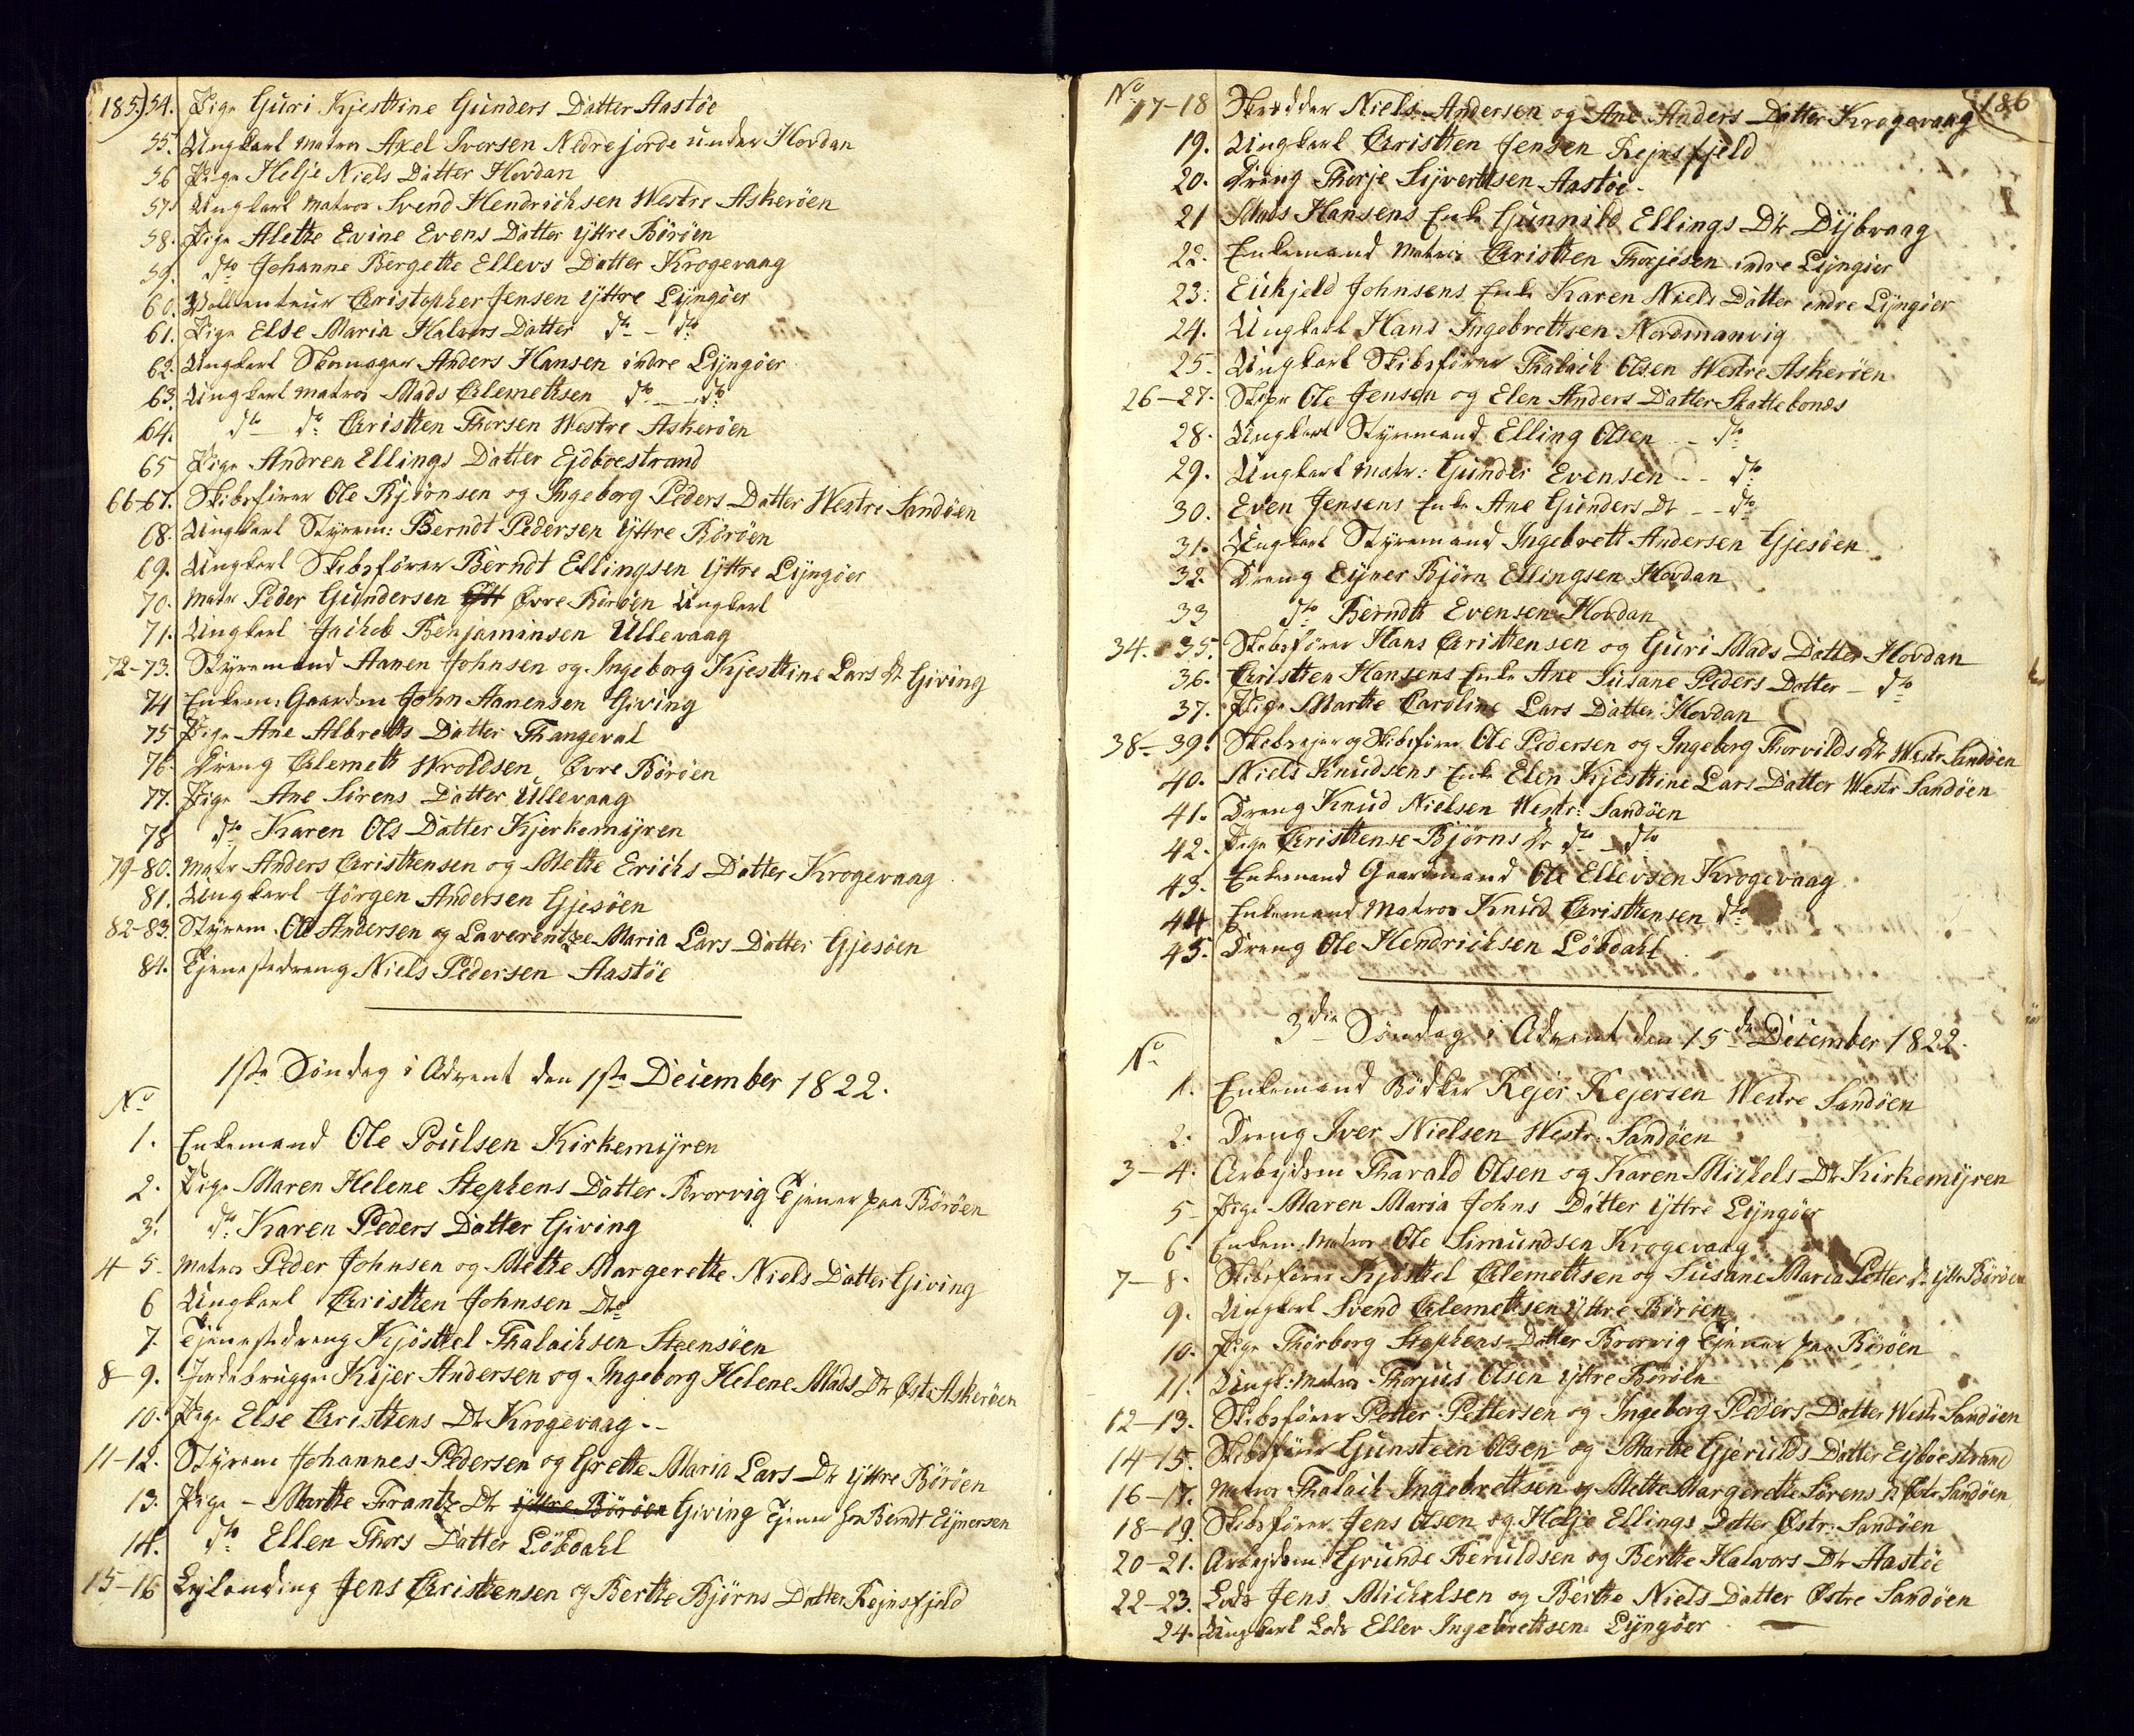 185.) 54. Pige Guri Kjesttine Gunders Datter Aastøe
55. Ungkarl Matros Axel Iversen Nedrejorde under Hovdan
56 Pige Helje Niels Datter Hovdan
57 Ungkarl Matros Svend Hendrichsen Westre Askerøen
58. Pige Alethe Evine Evens Datter Yttre Börøen
59. dto Johanne Bergette Ellevs Datter Krogevaag
60. Vollenteur Christopher Jensen Yttre Lÿngøer
61. Pige Else Maria Halvors Datter dto - dto
62. Ungkarl Skomager Anders Hansen indre Lÿngøer
63. Ungkarl Matros Mads Clemettsen dto - dto
64. dto - dto Christten Thorsen Westre Askerøen
65 Pige Andrea Ellings Datter Ejdboestrand
66-67. Skibsfører Ole Bjørnsen og Ingeborg Peders Datter Westre Sandøen
68. Ungkarl Styrem: Berndt Pedersen Yttre Börøen
69. Ungkarl Skibsfører Berndt Ellingsen Yttre Lÿngøer
70. Matr Peder Gundersen Øvre Börøen Ungkarl
71. Ungkarl Jachob Benjaminsen Ullevaag
72-73. Stÿremand Aanen Johnsen og Ingeborg Kjesttine Lars Dt Giving
74 Enkem: Gaardm John Aanensen Giving
75 Pige Ane Albretts Datter Thangeval
76. Dreng Clemett Wroldsen Øvre Börøen
77. Pige Ane Sörens Datter Ullevaag
78 dto Karen Ols Datter Kjerkemÿren
79-80. Matr Anders Christtensen og Mette Erichs Datter Krogevaag
81. Ungkarl Jörgen Andersen Gjesøen
82-83. Stÿrem. Ole Andersen og Laverentze Maria Lars Datter Gjesøen
84. Tjenestedreng Niels Pedersen Aastøe
1ste Søndag i Advent den 1ste December 1822.
No
1. Enkemand Ole Poulsen Kirkemÿren
2. Pige Maren Helene Stephens Datter Brorvig Tjener paa Börøen
3. dto Karen Peders Datter Giving
4-5. Matros Peder Johnsen og Mette Margerette Niels Datter Giving
6 Ungkarl Christten Johnsen Dto
7. Tjenestedreng Kjösttel Thalachsen Steensøen
8-9. Jordebrugger Kejer Andersen og Ingeborg Helene Mads Dtr Østr Askerøen
10. Pige Else Christtens Dtr Krogevaag
11-12. Stÿrem Johannes Pedersen og Grette Maria Lars Dtr Yttre Börøen
13. Pige - Marthe Frantz Dtr Yttre Börøen Giving Tjener hos Berndt Eÿnersen
14. dto Ellen Thors Datter Löbdahl
15-16 Lejlending Jens Christtensen og Berthe Bjørns Datter Rejnsfjeld
No 186
17-18 Skredder Niels Andersen og Ane Anders Datter Krogevaag
19. Ungkarl Christten Jensen Rejnsfjeld
20. Dreng Therje Sÿvertsen Aastøe
21 Mads Hansens Enke Gunnild Ellings Dtr Dÿbvaag
22. Enkemand Matros Christten Therjesen indre Lÿngøer
23. Eichjeld Johnsens Enke Karen Niels Datter indre Lÿngøer
24. Ungkarl Hans Ingebrettsen Nordmanvig
25. Ungkarl Skibsfører Thalach Olsen Westre Askerøen
26-27. Skipr Ole Jensen og Elen Anders Datter Skattebonæs
28. Ungkarl Stÿremand Elling Olsen - dto
29. Ungkarl Matr: Gunder Evensen - dto
30. Even Jensens Enke Ane Gunders Dt - dto
31. Ungkarl Stÿremand Ingebrett Andersen Gjesøen
32. Dreng Eÿner Bjørn Ellingsen Hovdan
33 dto Berndt Evensen Hovdan
34. 35. Skibsfører Hans Christtensen og Guri Mads Datter Hovdan
36. Christten Hansens Enke Ane Susane Peders Datter - dto
37. Pige Marthe Caroline Lars Datter Hovdan
38-39. Skibsejer og Skibsfører Ole Pedersen og Ingeborg Thorvilds Dtr Westr Sandøen
40. Niels Knudsens Enke Elen Kjesttine Lars Datter Westr Sandøen
41. Dreng Knud Nielsen Westr: Sandøen
42. Pige Christtense Bjørns Dr dto - dto
43. Enkemand Gaardmand Ole Ellevsen Krogevaag
44 Enkemand Matros Knud Christtensen dto
45. Dreng Ole Hendrichsen Löbdahl
3die Søndag i Advent den 15de December 1822.
No
1. Enkemand Bødker Rejer Rejersen Westre Sandøen
2. Dreng Iver Nielsen Westr: Sandøen
3-4. Arbejdsm Tharald Olsen og Karen Michels Dtr Kirkemÿren
5 Pige Maren Maria Johns Datter Yttre Lÿngøer
6. Enkem: Matros Ole Simundsen Krogevaag
7-8. Skibsfører Kjösttel Clemettsen og Susane Maria Petter Dr Ytt Börøen
9. Ungkarl Svend Clemettsen Yttre Börøen
10. Pige Thorborg Stephens Datter Brorvig Tjener paa Börøen
11. Ungk: Matros Thorjus Olsen Yttre Börøen
12-13. Skibsfører Petter Pettersen og Ingeborg Peders Datter Westr Sandøen
14-15. Skibsfører Gunsteen Olsen og Marthe Gjerulds Datter Ejdboestrand
16-17. Matros Thalach Ingebrettsen og Mette Margerette Sörens Dr Østr Sandøen
18-19 Skibsfører Jens Olsen og Helje Ellings Datter Østr: Sandøen
20-21. Arbejdsm: Grunde Beruldsen og Berthe Halvors Dtr Aastøe
22-23. Lods Jens Michelsen og Berthe Niels Datter Østre Sandøen
24. Ungkarl Lods Ellev Ingebrettsen Lÿngøer